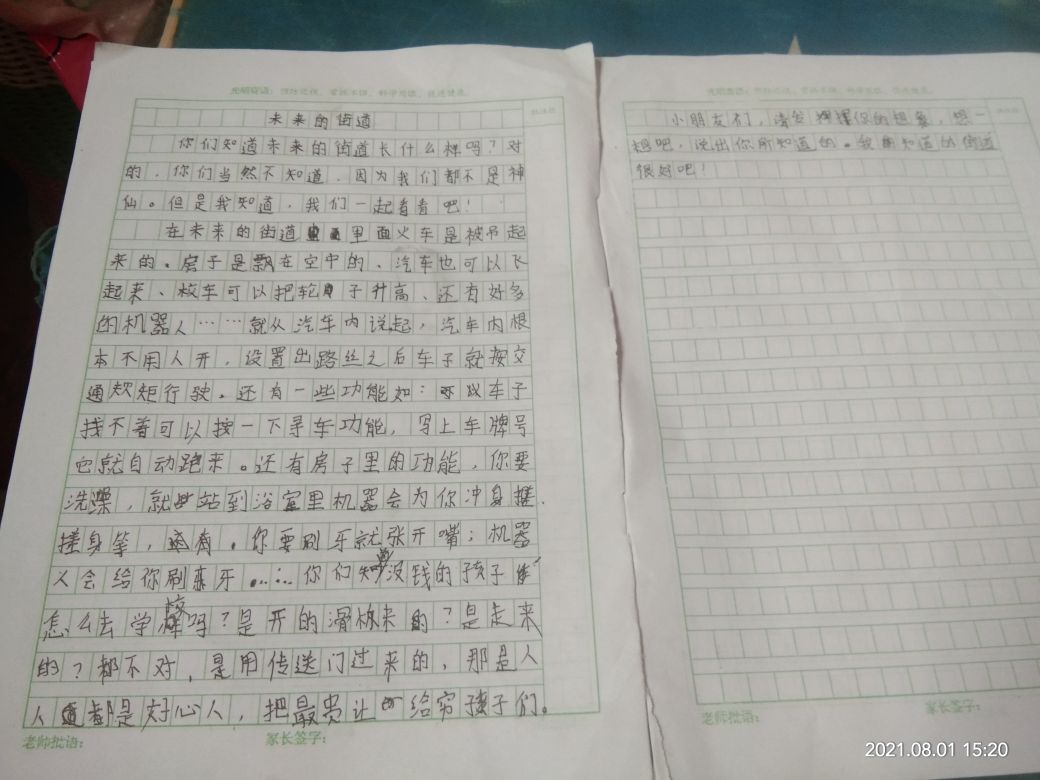 未来的街道
你们知道未来的街道长什么样吗？对
的，你们当然不知道，因为我们都不是神
仙。但是我知道，我们一起看看吧！
在未来的街道里面火车是被吊起
来的、房子是飘在空中的、汽车也可以飞
起来、校车可以把轮子升高、还有好多
的机器人……就从汽车内说起，汽车内根
本不用人开，设置出路丝之后车子就按交
通矩行驶。还有一些功能如：车子
找不着可以按一下寻车功能，写上车牌号
它就自动跑来。还有房子里的功能，你要
洗澡，就站到浴室里机器会为你冲身搓
搓身等，还有。你要刷牙就张开嘴；机器
人会给你刷牙……你们知道没钱的孩子
怎么去学校吗？是开的滑梯来的？是走来
的？都不对，是用传送门过来的，那是人
人都是好心人，把最贵让给穷孩子们。
老师批语：
家长签字：
小朋友们，请发挥你的想象，想一
想吧，说出你所知道的。我知道的街道
很好吧！
老师批语：
家长签字：
2021.08.01 15:20